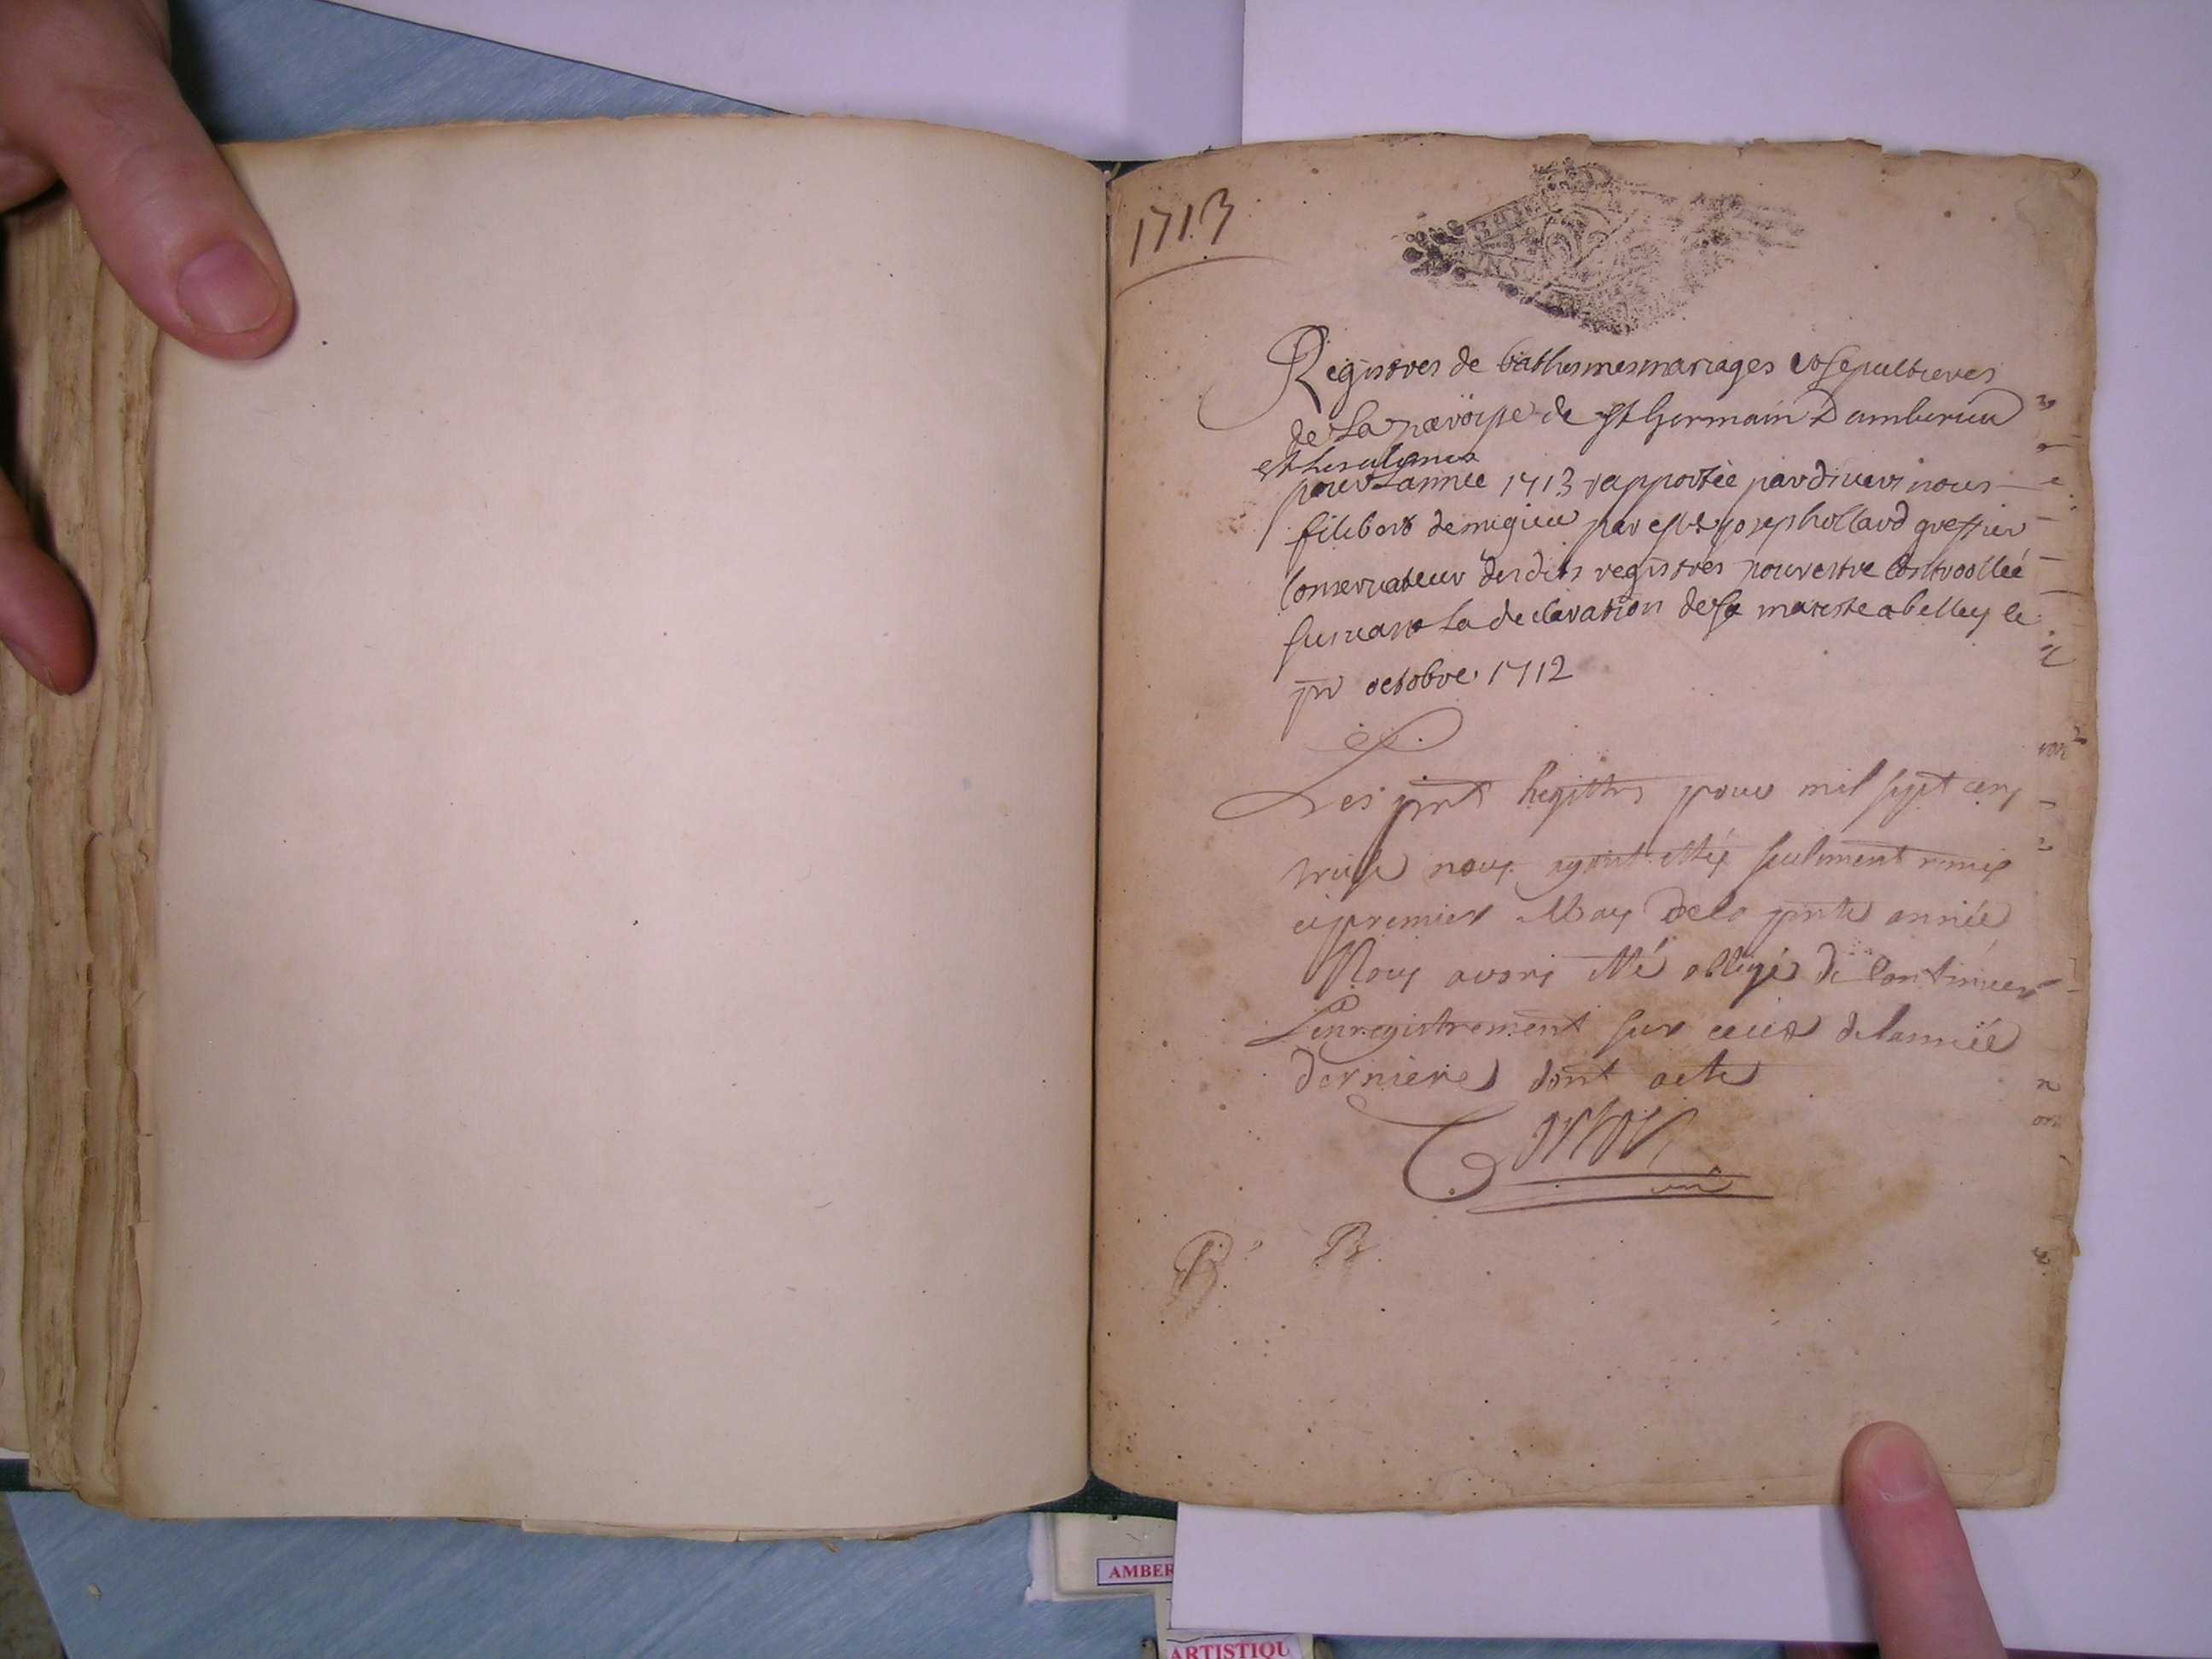 1713
Registres de bathesmes mariages et sepultures
de La paroisse de St Germain Damberieu
et les alimes
pour Lannee 1713 rapportée pardivers nous
filibert demigieu par Joseph ollard greffier
Conservateur desdits registres pour estre Controollée
suivant La declaration de sa maieste a belley le
pr octobre 1712
Les pnts Registres pour mil sept cens
treise nous ayant estés seulement remis
ce premier May de la pnte année
Nous avons été obligés de Continuer
Lenregistrement sur ceux de lannée
derniere dont acte
AMBER
ARTISTIQU